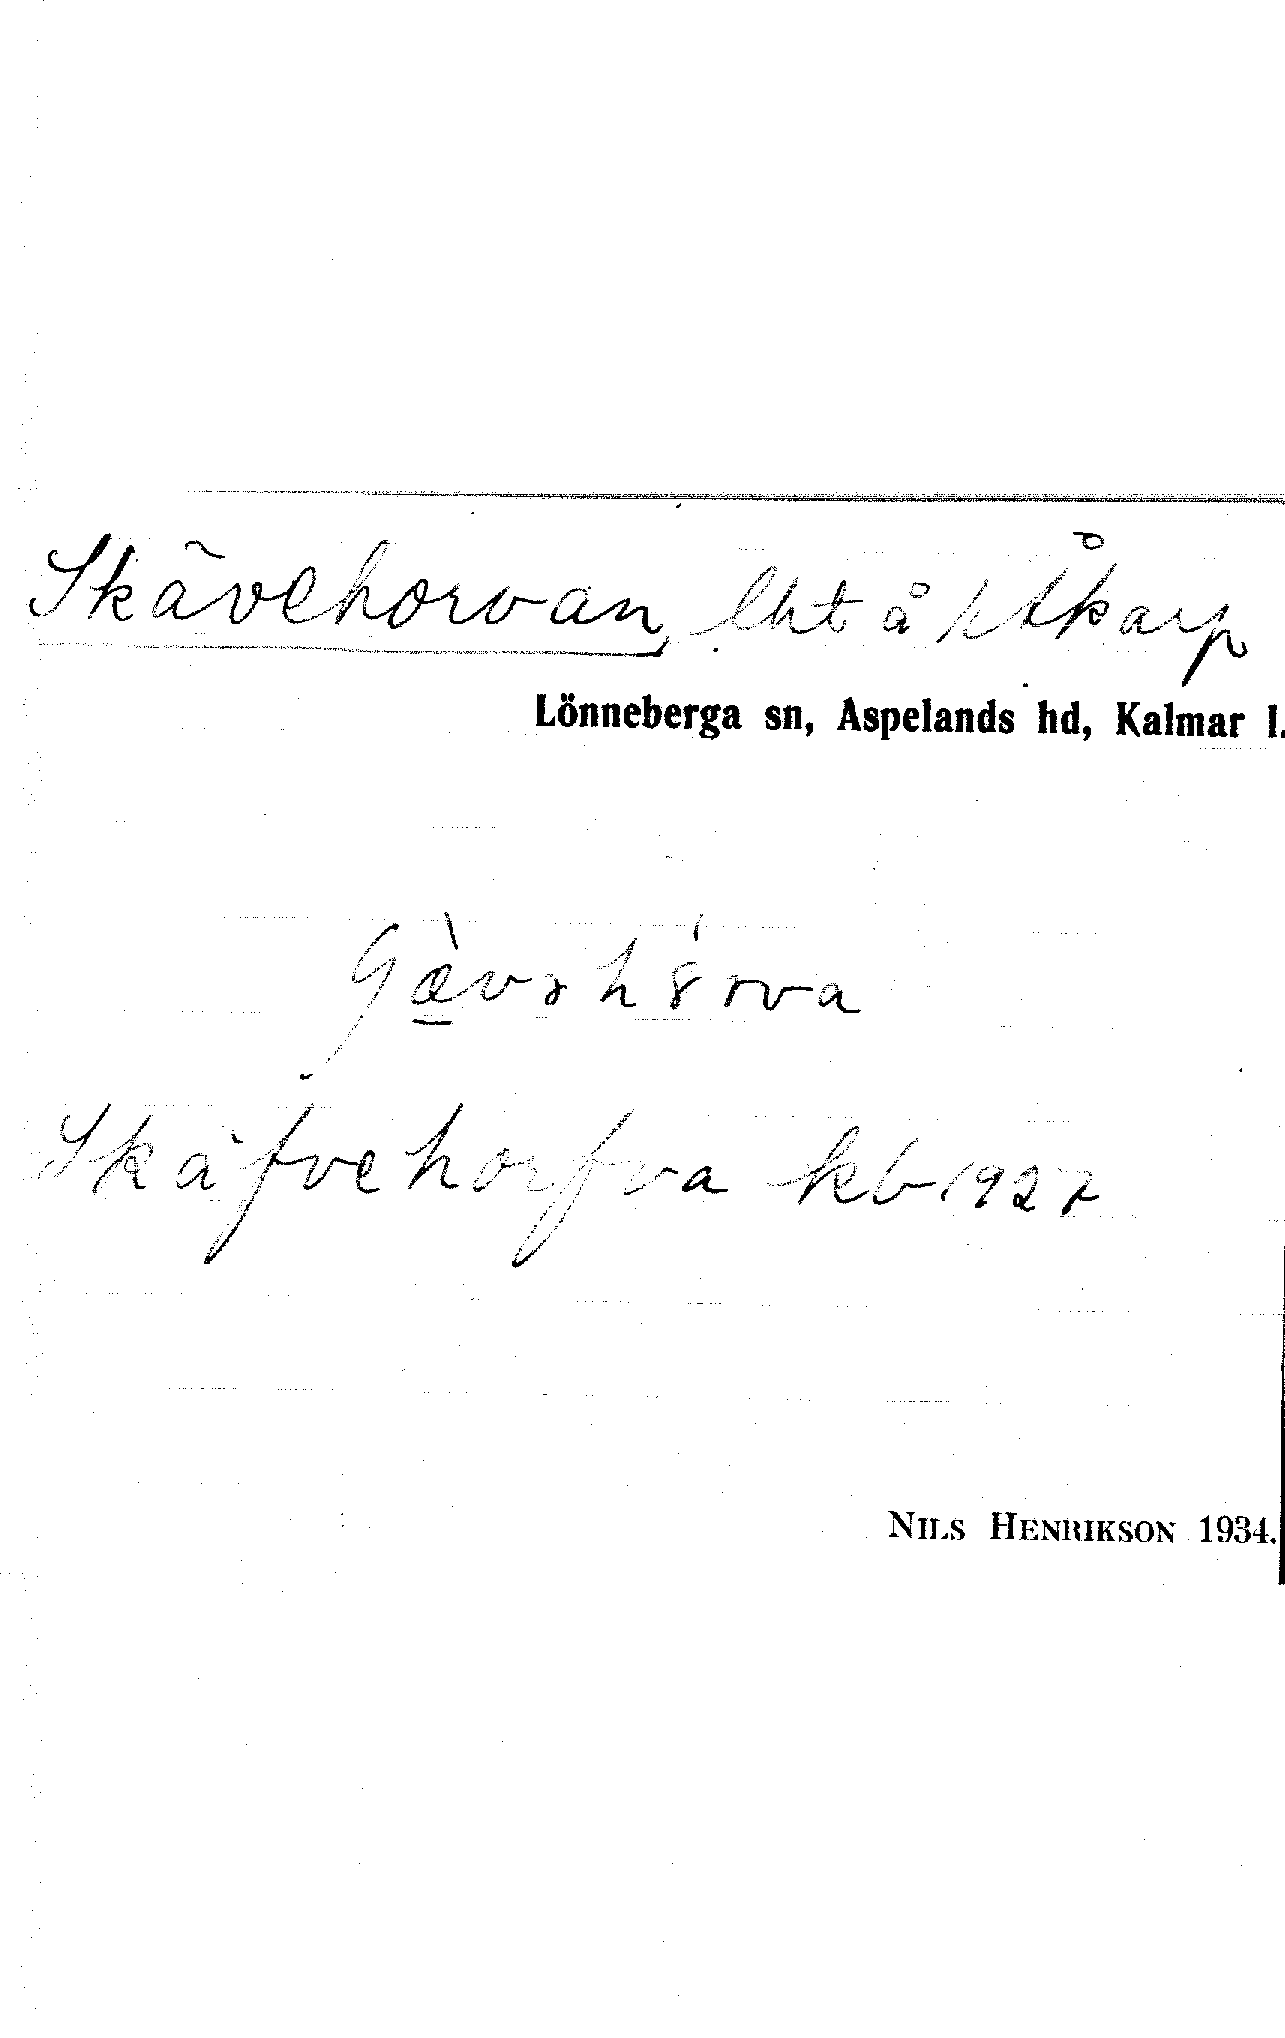 Skävehorvan, lht å Åkarp
Lönneberga sn, Aspelands hd, Kalmar l.
Skäfvehorfva kb 1927
NILS HENRIKSON 1934.